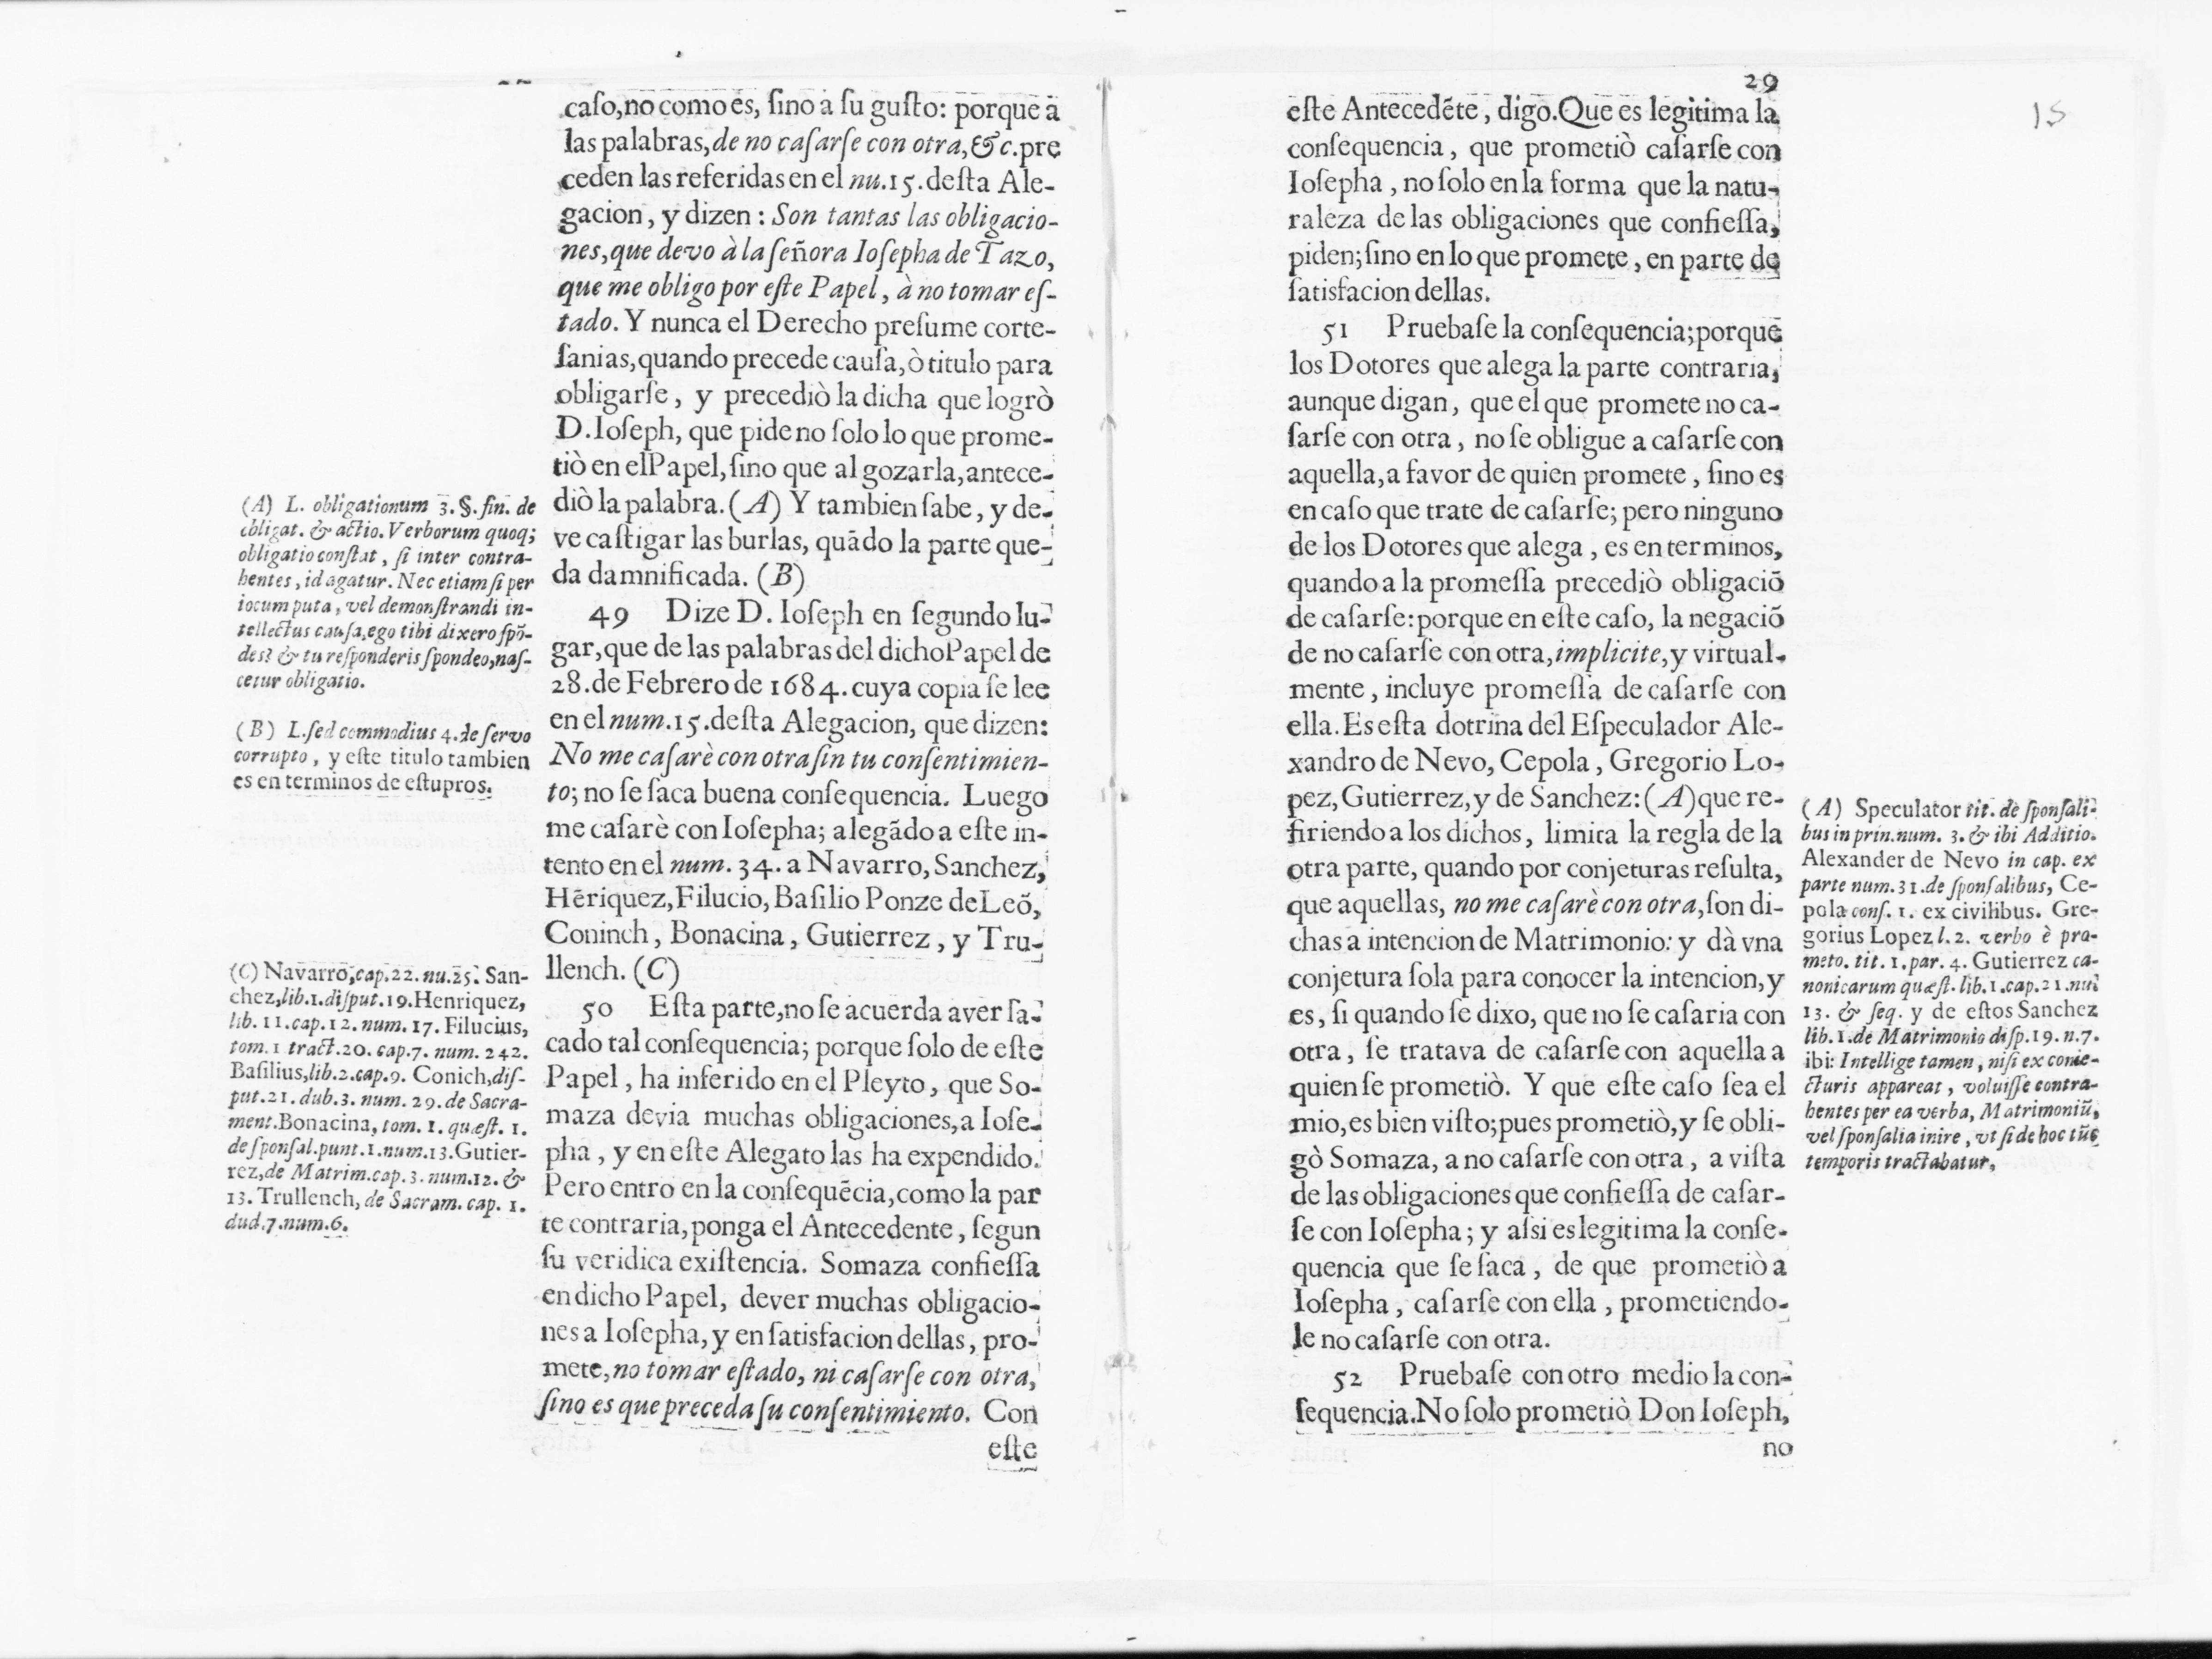 caſo,no como es, ſino à ſu guſto: porque à
las palabras, de no caſarſe con otra, &c. pre
ceden las referidas en el nu.15. deſta Ale-
gacion, y dizen: Son tantas las obligacio-
nes, que devo à la ſeñora Ioſepha de Tazo,
que me obligo por eſte Papel, à no tomar eſ-
tado. Y nunca el Derecho preſume corte-
ſanias, quando precede cauſa, ò titulo para
obligarſe, y precediò la dicha que logrò
D.Ioſeph, que pide no ſolo lo que prome-
tiò en el Papel, ſino que al gozarla, antece-
diò la palabra. (A) Y tambien ſabe, y de-
ve caſtigar las burlas, quãdo la parte que-
da damnificada. (B)
49 Dize D. Ioſeph en ſegundo lu-
gar, que de las palabras del dicho Papel de
28. de Febrero de 1684. cuya copia ſe lee
en el num.15. deſta Alegacion, que dizen:
No me caſarè con otra ſin tu conſentimien-
to; no ſe ſaca buena conſequencia. Luego
me caſarè con Ioſepha; alegãdo a eſte in-
tento en el num. 34. a Navarro, Sanchez,
Hẽriquez, Filucio, Baſilio Ponze de Leõ,
Coninch, Bonacina, Gutierrez, y Tru-
llench. (C)
50 Eſta parte, no ſe acuerda aver ſa-
cado tal conſequencia; porque ſolo de eſte
Papel, ha inferido en el Pleyto, que So-
maza devia muchas obligaciones, a Ioſe-
pha, y en eſte Alegato las ha expendido.
Pero entro en la conſequẽcia, como la par
te contraria, ponga el Antecedente, ſegun
ſu veridica exiſtencia. Somaza confieſſa
en dicho Papel, dever muchas obligacio-
nes a Ioſepha, y en ſatisfacion dellas, pro-
mete, no tomar eſtado, ni caſarſe con otra,
ſino es que preceda ſu conſentimiento. Con
eſte
(A) L. obligationum 3. §. fin. de
obligat. & actio. Verborum quoq;
obligatio conſtat, ſi inter contra-
hentes, id agatur. Nec etiam ſi per
iocum puta, vel demonſtrandi in-
tellectus cauſa, ego tibi dixero ſpõ-
des? & tu reſponderis ſpondeo, naſ-
cetur obligatio.
(B) L. ſed commodius 4. de ſervo
corrupto, y eſte titulo tambien
es en terminos de eſtupros.
(C) Navarro, cap.22. nu.25. San-
chez, lib.1. diſput.19. Henriquez,
lib. 11. cap.12. num. 17. Filucius,
tom.1 tract.20. cap.7. num. 242.
Baſilius, lib.2. cap.9. Conich, diſ-
put.21. dub.3. num. 29. de Sacra-
ment. Bonacina, tom. 1. quæſt. 1.
de ſponſal. punt.1. num.13. Gutier-
rez, de Matrim. cap.3. num.12. &
13. Trullench, de Sacram. cap. 1.
dud.7. num.6.
29
15
eſte Antecedẽte, digo. Que es legitima la
conſequencia, que prometiò caſarſe con
Ioſepha, no ſolo en la forma que la natu-
raleza de las obligaciones que confieſſa,
piden; ſino en lo que promete, en parte de
ſatisfacion dellas.
51 Pruebaſe la conſequencia; porque
los Dotores que alega la parte contraria,
aunque digan, que el que promete no ca-
ſarſe con otra, no ſe obligue a caſarſe con
aquella, a favor de quien promete, ſino es
en caſo que trate de caſarſe; pero ninguno
de los Dotores que alega, es en terminos,
quando a la promeſſa precediò obligaciõ
de caſarſe: porque en eſte caſo, la negaciõ
de no caſarſe con otra, implicite, y virtual-
mente, incluye promeſſa de caſarſe con
ella. Es eſta dotrina del Eſpeculador Ale-
xandro de Nevo, Cepola, Gregorio Lo-
pez, Gutierrez, y de Sanchez: (A) que re-
firiendo a los dichos, limita la regla de la
otra parte, quando por conjeturas reſulta,
que aquellas, no me caſarè con otra, ſon di-
chas a intencion de Matrimonio: y dà vna
conjetura ſola para conocer la intencion, y
es, ſi quando ſe dixo, que no ſe caſaria con
otra, ſe tratava de caſarſe con aquella a
quien ſe prometiò. Y que eſte caſo ſea el
mio, es bien viſto; pues prometiò, y ſe obli-
gò Somaza, a no caſarſe con otra, a viſta
de las obligaciones que confieſſa de caſar-
ſe con Ioſepha; y aſsi es legitima la conſe-
quencia que ſe ſaca, de que prometiò a
Ioſepha, caſarſe con ella, prometiendo-
le no caſarſe con otra.
52 Pruebaſe con otro medio la con-
ſequencia. No ſolo prometiò Don Ioſeph,
no
(A) Speculator tit. de ſponſali-
bus in prin. num. 3. & ibi Additio.
Alexander de Nevo in cap. ex
parte num.31. de ſponſalibus, Ce-
pola conſ. 1. ex civilibus. Gre-
gorius Lopez l. 2. verbo è pro-
meto. tit. 1. par. 4. Gutierrez ca-
nonicarum quæſt. lib.1. cap.21. nu.
13. & ſeq. y de eſtos Sanchez
lib.1. de Matrimonio diſp.19. n.7.
ibi: Intellige tamen, niſi ex conie-
cturis appareat, voluiſſe contra-
hentes per ea verba, Matrimoniũ,
vel ſponſalia inire, vt ſi de hoc tũc
temporis tractabatur.